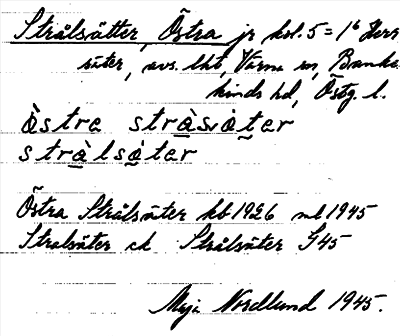 Strålsätter, Östra jr kol. 5 = 1⁶ Herr
säter, avs. lht, Värna sn, Banke
kinds hd, Östg. l.
àstra stràsàter
stràlsàter
Östra Strålsäter kb 1926 ml 1945
Stralsäter ck Strålsäter G45
Maja Nordlund 1945.